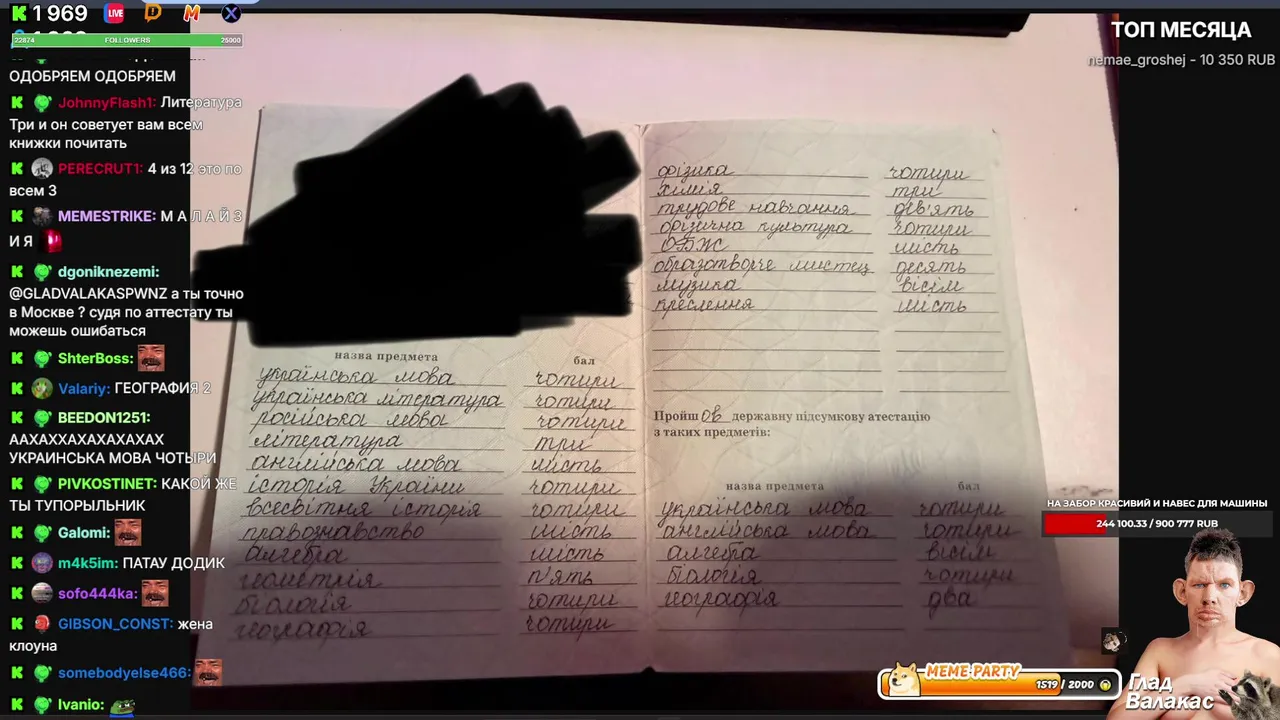 1 969
LIVE
22874 FOLLOWERS 25000
ОДОБРЯЕМ ОДОБРЯЕМ
JohnnyFlash1: Литература
Три и он советует вам всем
книжки почитать
PERECRUT1: 4 из 12 это по
всем 3
MEMESTRIKE: М А Л А Й З
И Я
dgoniknezemi:
@GLADVALAKASPWNZ а ты точно
в Москве ? судя по аттестату ты
можешь ошибаться
ShterBoss:
Valariy: ГЕОГРАФИЯ 2
BEEDON1251:
ААХАХХАХАХАХАХ
УКРАИНСЬКА МОВА ЧОТЫРИ
PIVKOSTINET: КАКОЙ ЖЕ
ТЫ ТУПОРЫЛЬНИК
Galomi:
m4k5im: ПАТАУ ДОДИК
sofo444ka:
GIBSON_CONST: жена
клоуна
somebodyelse466:
Ivanio:
назва предмета бал
українська мова чотири
українська література чотири
російська мова чотири
література три
англійська мова шість
історія України чотири
всесвітня історія чотири
правознавство шість
алгебра шість
геометрія п'ять
біологія чотири
географія чотири
фізика чотири
хімія три
трудове навчання дев'ять
фізична культура чотири
ОБЖ шість
образотворче мистец десять
музика вісім
креслення шість
Пройшов державну підсумкову атестацію
з таких предметів:
назва предмета бал
українська мова чотири
англійська мова чотири
алгебра вісім
біологія чотири
географія два
ТОП МЕСЯЦА
nemae_groshej - 10 350 RUB
НА ЗАБОР КРАСИВИЙ И НАВЕС ДЛЯ МАШИНЫ
244 100.33 / 900 777 RUB
MEME PARTY
1519 / 2000
Глад
Валакас